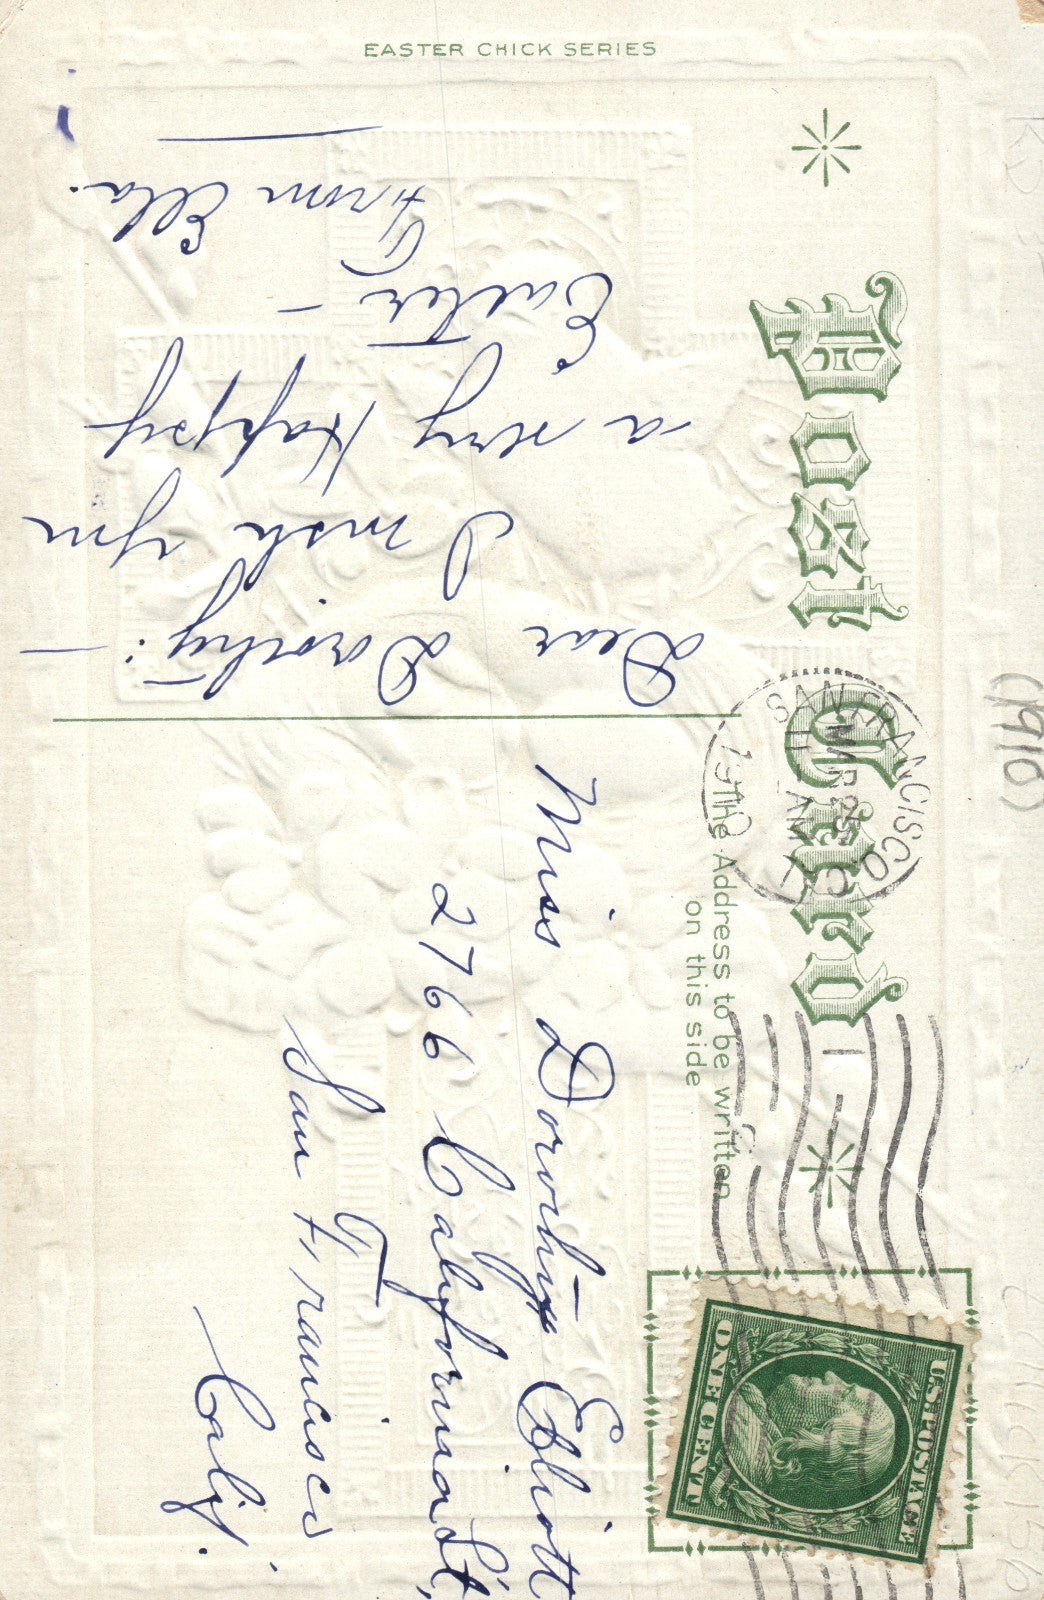 EASTER CHICK SERIES
Post Card
The Address to be written
on this side
SAN FRANCISCO, C
MAR 25
11 - AM
1910
U.S. POSTAGE
ONE CENT
Dear Dorothy:-
I wish you
a very Happy
Easter -
From Ella.
Miss Dorothy Elliott
2766 California St,
San Francisco
Calif.
(1910)